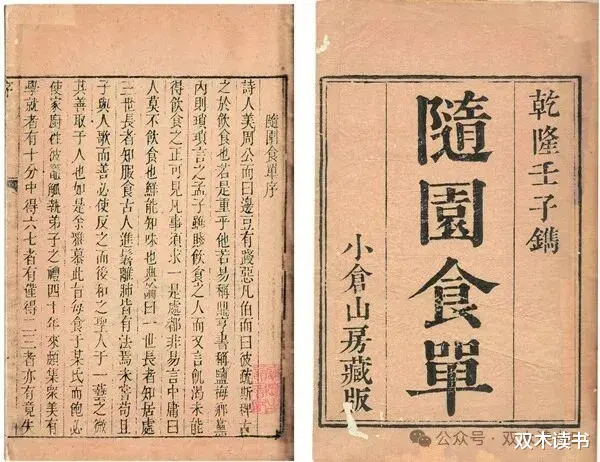 乾隆壬子鐫
隨園食單
小倉山房藏版
隨園食單序
詩人美周公而曰邊豆有踐惡凡伯而曰彼疏斯稗古
之於飲食也若是重乎他若易稱鼎亨書稱鹽梅鄉黨
內則瑣瑣言之孟子雖賤飲食之人而又言飢渴未能
得飲食之正可見凡事須求一是處都非易言中庸曰
人莫不飲食也鮮能知味也典論曰一世長者知居處
三世長者知服食古人進鬐離肺皆有法焉未嘗苟且
子與人歌而善必使反之而後和之聖人于一藝之微
其善取于人也如是余雅慕此旨每食于某氏而飽必
使家廚往彼竈觚執弟子之禮四十年來頗集衆美有
學就者有十分中得六七者有僅得二三者亦有竟失
公众号·双
双木读书